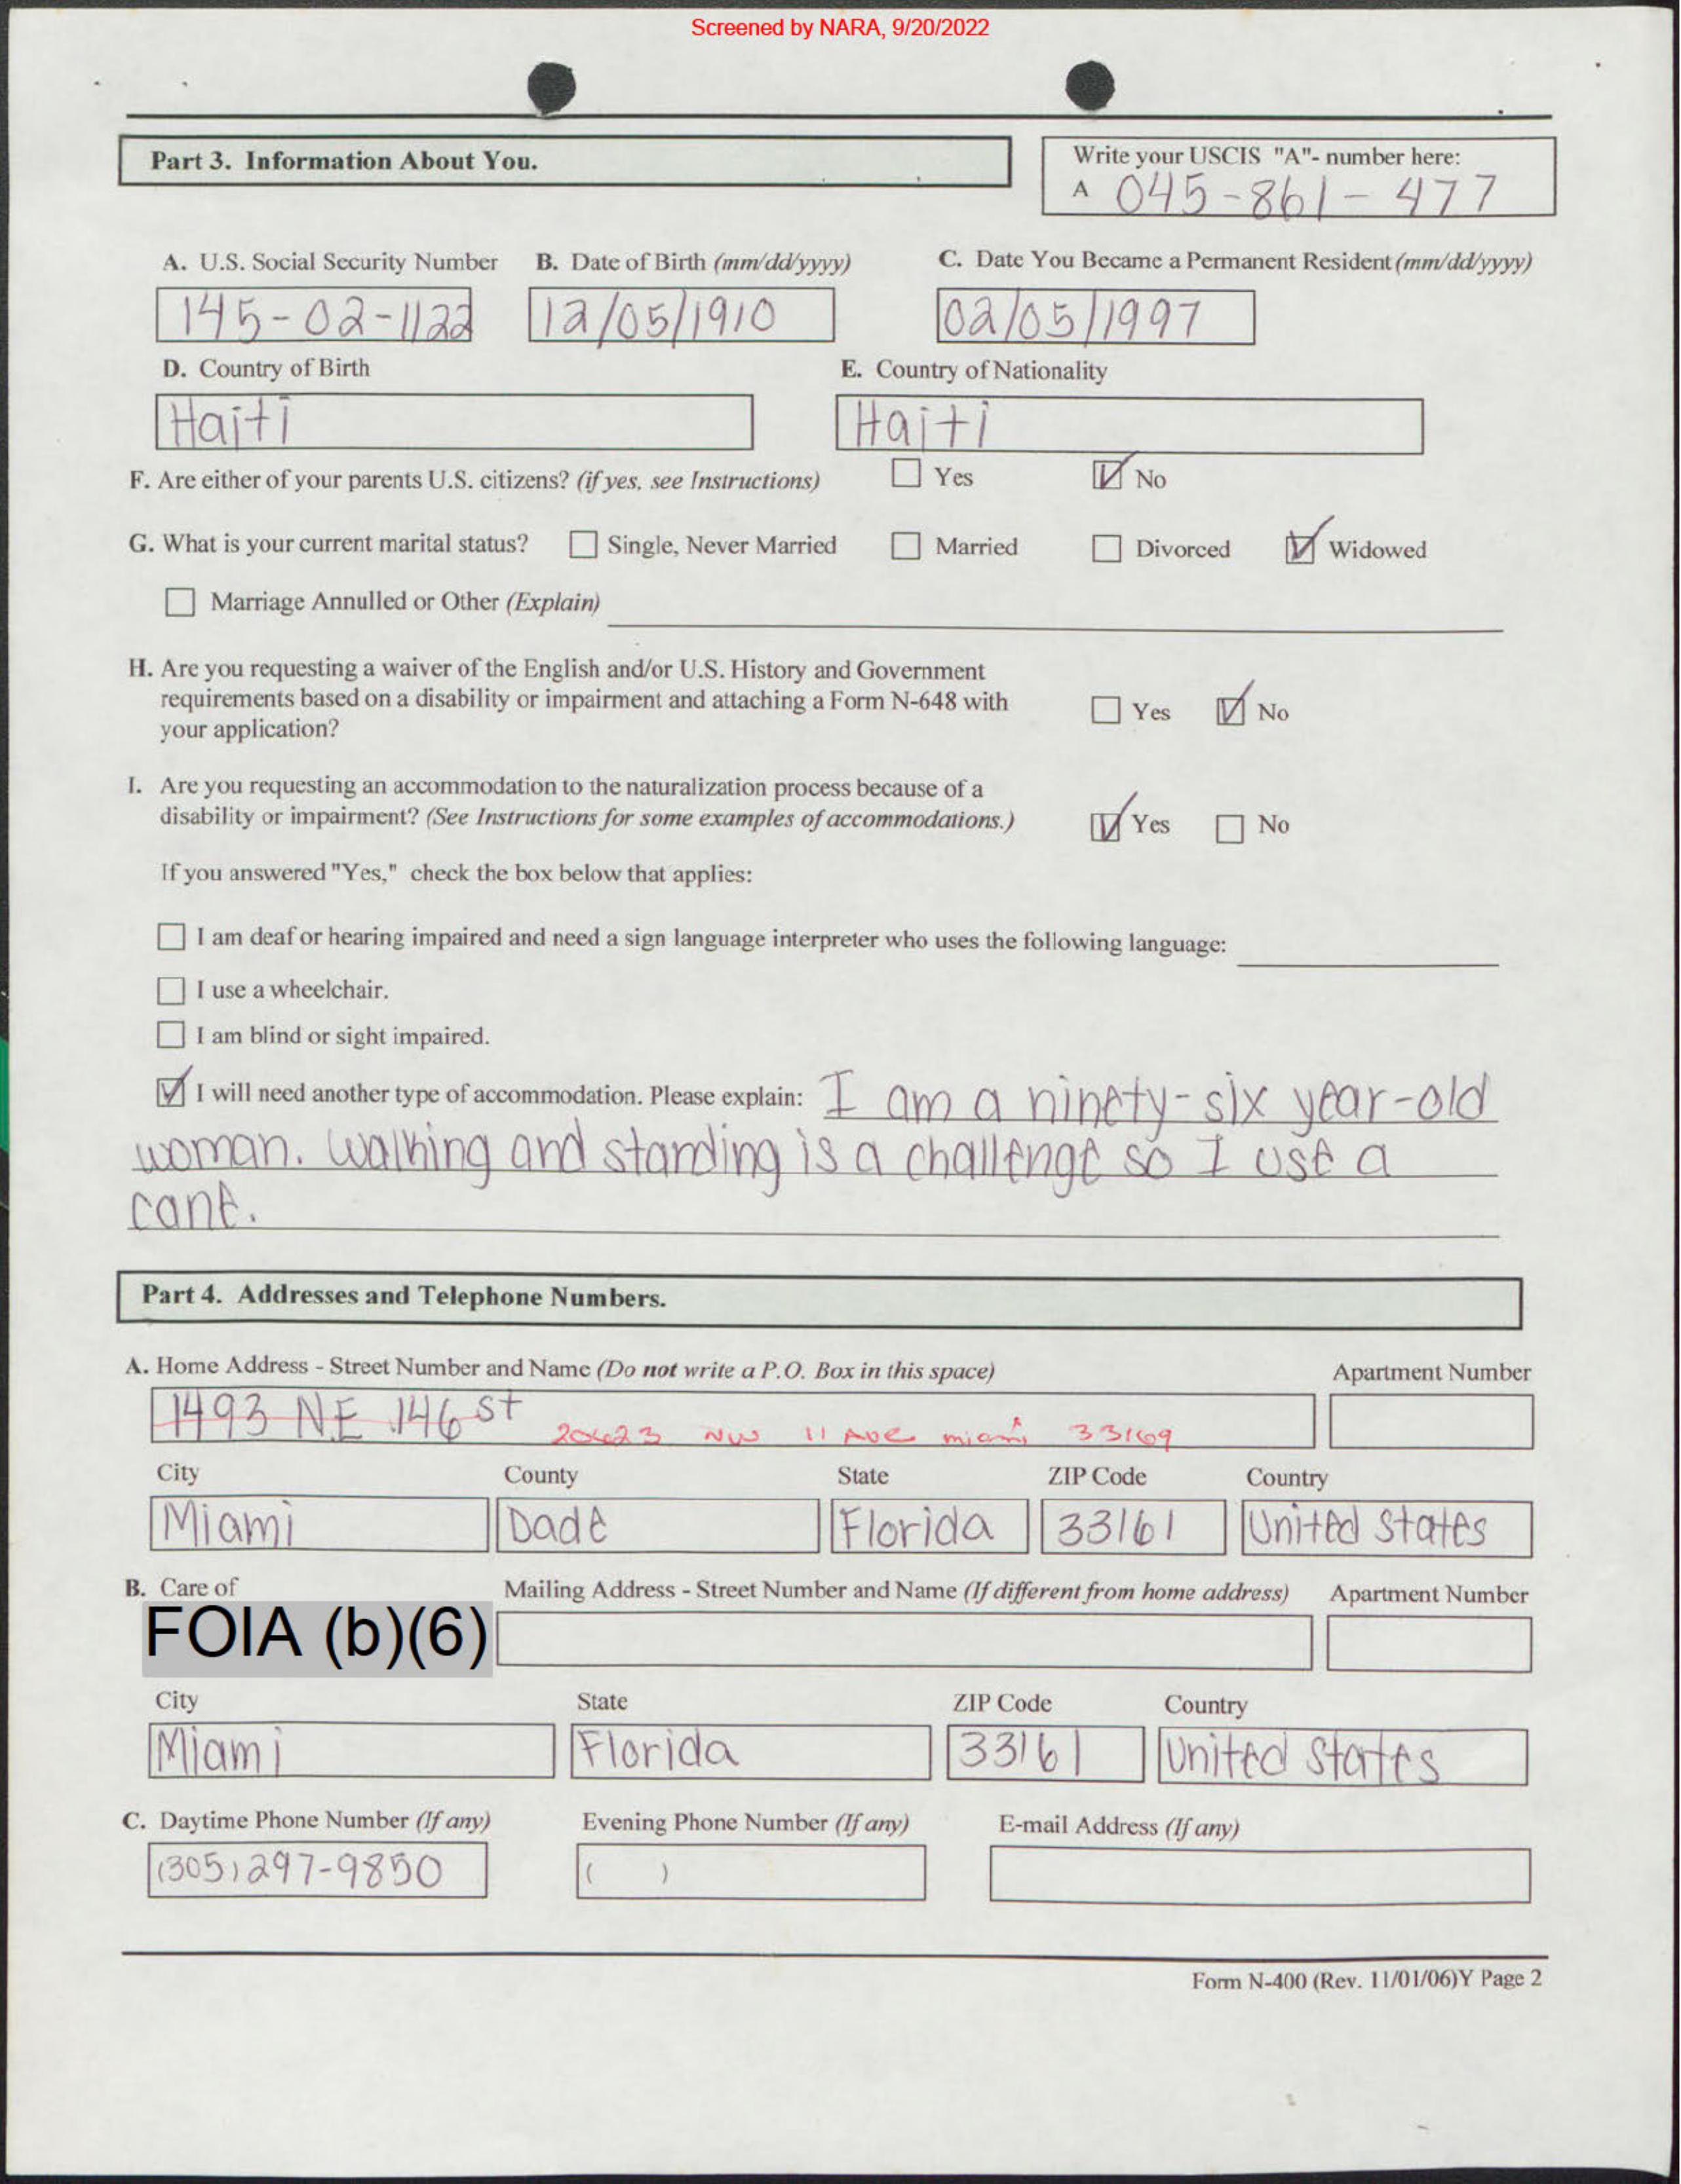 Screened by NARA, 9/20/2022
Part 3. Information About You.
Write your USCIS "A"- number here:
A 045-861-477
A. U.S. Social Security Number B. Date of Birth (mm/dd/yyyy) C. Date You Became a Permanent Resident (mm/dd/yyyy)
145-02-1122 12/05/1910 02/05/1997
D. Country of Birth E. Country of Nationality
Haiti Haiti
F. Are either of your parents U.S. citizens? (if yes, see Instructions) Yes No
G. What is your current marital status? Single, Never Married Married Divorced Widowed
Marriage Annulled or Other (Explain)
H. Are you requesting a waiver of the English and/or U.S. History and Government
requirements based on a disability or impairment and attaching a Form N-648 with
your application? Yes No
I. Are you requesting an accommodation to the naturalization process because of a
disability or impairment? (See Instructions for some examples of accommodations.) Yes No
If you answered "Yes," check the box below that applies:
I am deaf or hearing impaired and need a sign language interpreter who uses the following language:
I use a wheelchair.
I am blind or sight impaired.
I will need another type of accommodation. Please explain: I am a ninety-six year-old
woman. Walking and standing is a challenge so I use a
cane.
Part 4. Addresses and Telephone Numbers.
A. Home Address - Street Number and Name (Do not write a P.O. Box in this space) Apartment Number
1493 NE 146 St 20423 NW 11 Ave miami 33169
City County State ZIP Code Country
Miami Dade Florida 33161 United States
B. Care of Mailing Address - Street Number and Name (If different from home address) Apartment Number
FOIA (b)(6)
City State ZIP Code Country
Miami Florida 33161 United States
C. Daytime Phone Number (If any) Evening Phone Number (If any) E-mail Address (If any)
(305) 297-9850 ( )
Form N-400 (Rev. 11/01/06)Y Page 2